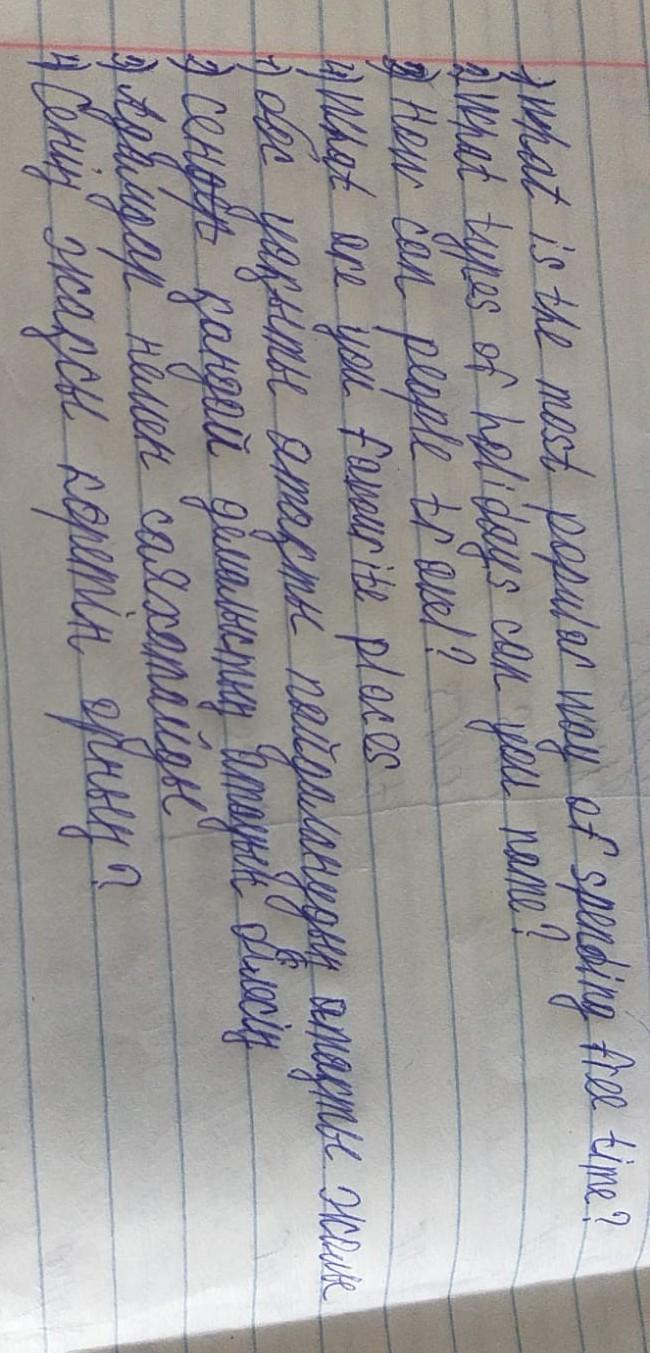 1) What is the most popular way of spending free time?
2) What types of holidays can you name?
3) How can people travel?
4) What are you favourite places
1) обс уақыты атақты пайдаланудың атақты жолы
2) сен қандай демалыстың атауын білесің
3) Адамдар немен саяхатайды
4) Сенің жақсы көретін орның?